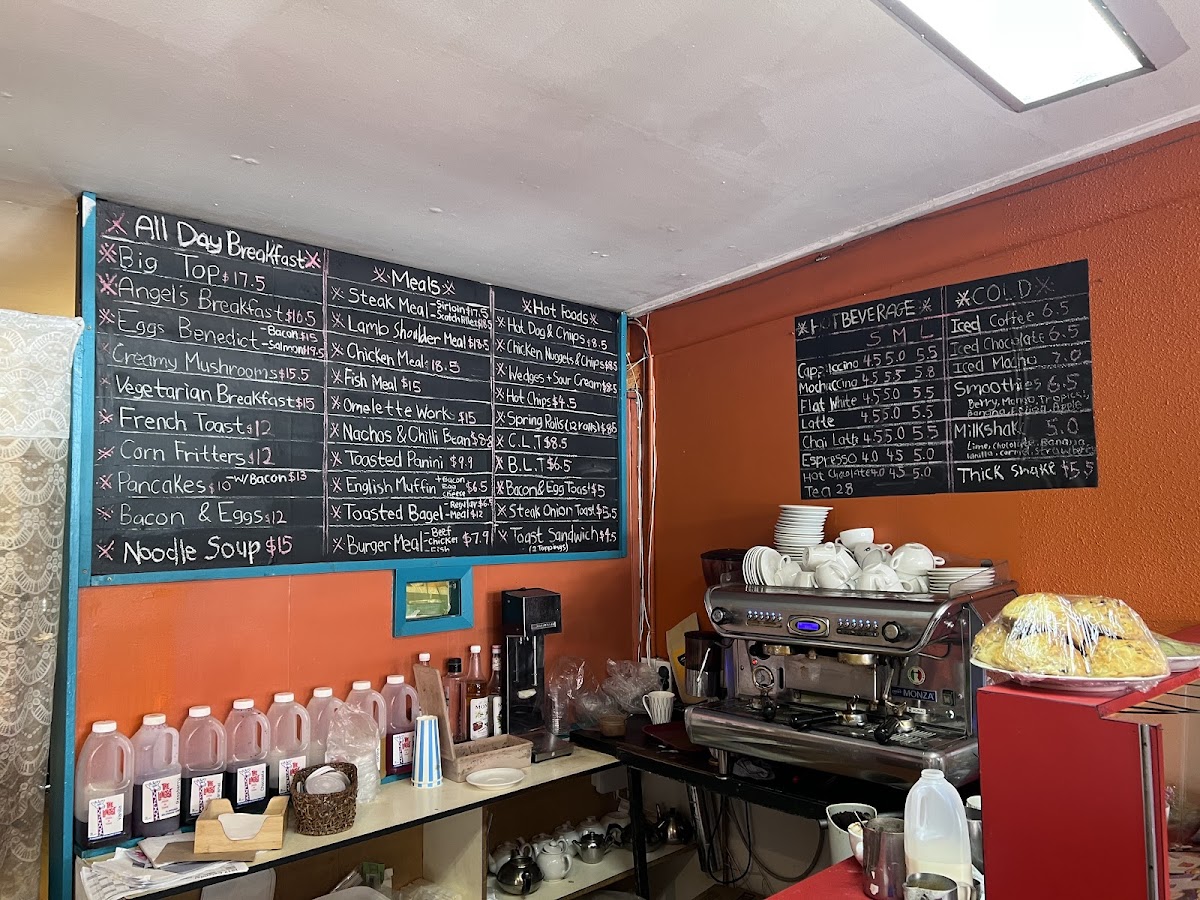 All Day Breakfast
Big Top $17.5
Angel's Breakfast $16.5
Eggs Benedict -Bacon $15
-Salmon $19.5
Creamy Mushrooms $15.5
Vegetarian Breakfast $15
French Toast $12
Corn Fritters $12
Pancakes $10 -w/Bacon $13
Bacon & Eggs $12
Noodle Soup $15
Meals
Steak Meal -Sirloin $17.5
-Scotch Fillet $18.5
Lamb Shoulder Meal $18.5
Chicken Meal $18.5
Fish Meal $15
Omelette Works $15
Nachos & Chilli Bean $8.8
Toasted Panini $9.9
English Muffin +Bacon Egg Cheese $6.5
Toasted Bagel -Regular $6.5
-Meal $12
Burger Meal -Beef
-Chicken
-Fish $7.9
Hot Foods
Hot Dog & Chips $8.5
Chicken Nuggets & Chips $8.5
Wedges + Sour Cream $8.5
Hot Chips $4.5
Spring Rolls (12 rolls) $8.5
C.L.T $8.5
B.L.T $6.5
Bacon & Egg Toast $5
Steak Onion Toast $5.5
Toast Sandwich $4.5
(2 Toppings)
HOT BEVERAGE
S M L
Cappuccino 4.5 5.0 5.5
Mochaccino 4.5 5.5 5.8
Flat White 4.5 5.0 5.5
Latte 4.5 5.0 5.5
Chai Latte 4.5 5.0 5.5
Espresso 4.0 4.5 5.0
Hot Chocolate 4.0 4.5 5.0
Tea 2.8
COLD
Iced Coffee 6.5
Iced Chocolate 6.5
Iced Mocha 7.0
Smoothies 6.5
Berry, Mango, Tropical,
Banana, Feijoa, Apple
Milkshake 5.0
Lime, Chocolate, Banana
Vanilla, Caramel, Strawberry
Thick Shake $5.5
MONZA